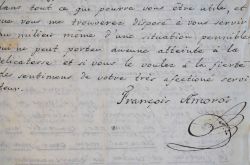 dans tout ce que pourra vous être utile, et
que vous me trouverez disposé à vous servir
au milieu même d'une situation pennible
qui ne peut porter aucune atteinte à la
délicatesse et si vous le voulez à la fierté
des sentimens de votre très afectioné servi
teur.
François Amoros